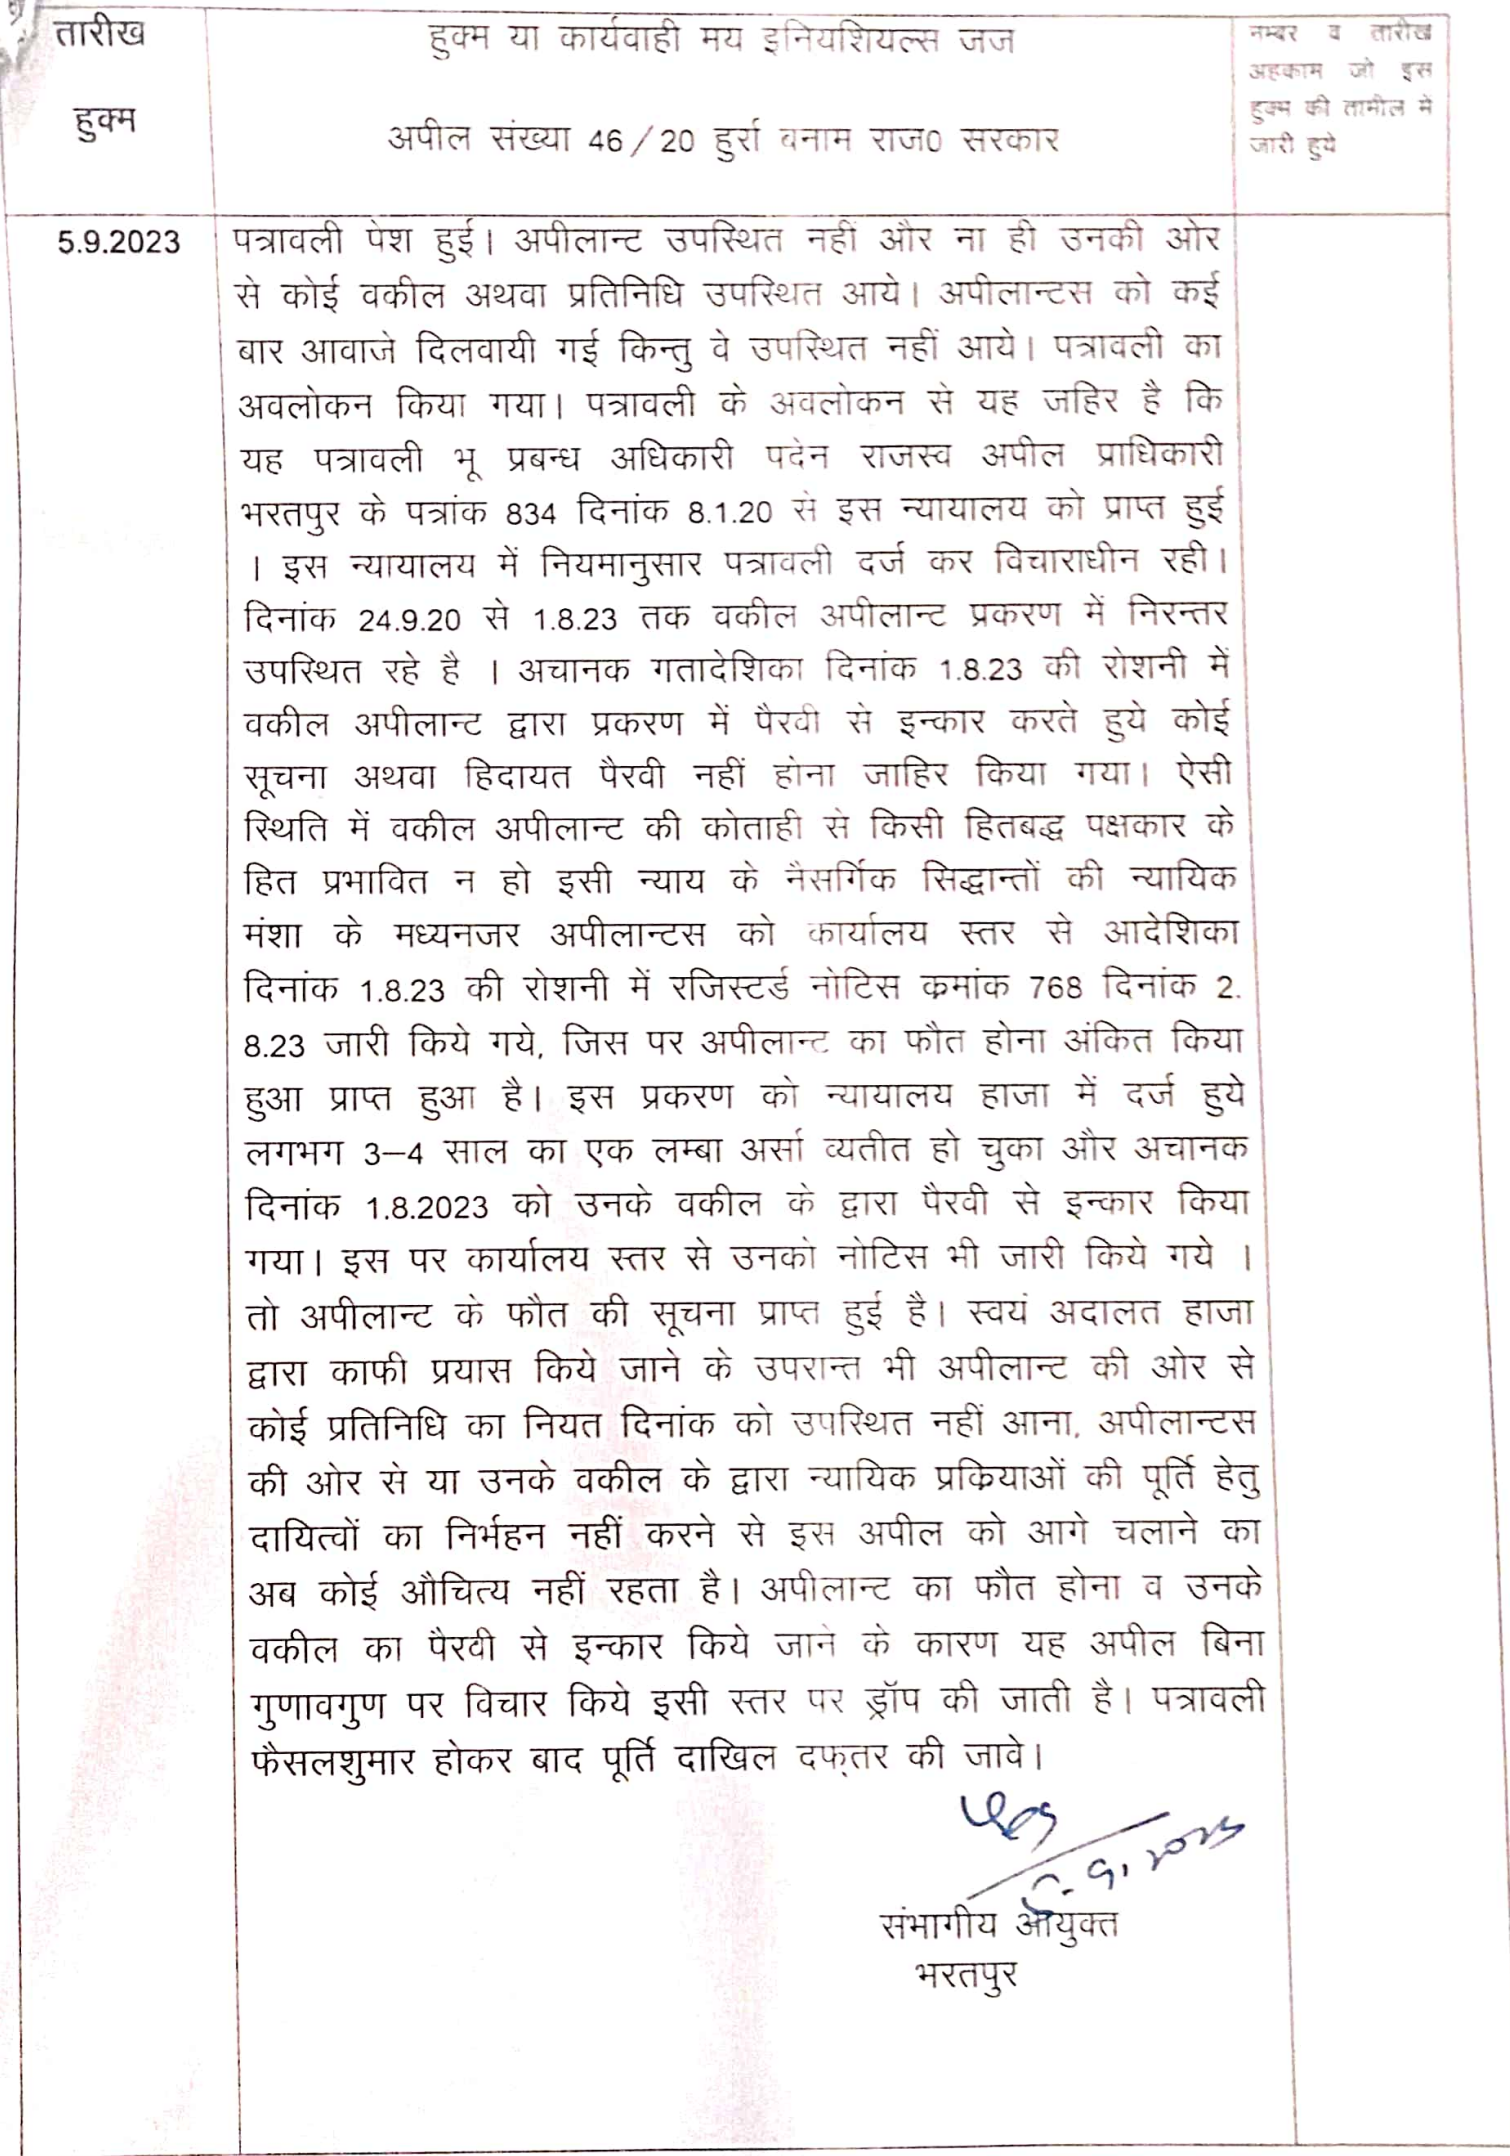 तारीख
हुक्म
हुक्म या कार्यवाही मय इनियशियल्स जज
अपील संख्या 46/20 हुर्रा बनाम राज0 सरकार
नम्बर व तारीख
अहकाम जो इस
हुक्म की तामील में
जारी हुये
5.9.2023
पत्रावली पेश हुई। अपीलान्ट उपस्थित नहीं और ना ही उनकी ओर
से कोई वकील अथवा प्रतिनिधि उपस्थित आये। अपीलान्टस को कई
बार आवाजे दिलवायी गई किन्तु वे उपस्थित नहीं आये। पत्रावली का
अवलोकन किया गया। पत्रावली के अवलोकन से यह जहिर है कि
यह पत्रावली भू प्रबन्ध अधिकारी पदेन राजस्व अपील प्राधिकारी
भरतपुर के पत्रांक 834 दिनांक 8.1.20 से इस न्यायालय को प्राप्त हुई
। इस न्यायालय में नियमानुसार पत्रावली दर्ज कर विचाराधीन रही।
दिनांक 24.9.20 से 1.8.23 तक वकील अपीलान्ट प्रकरण में निरन्तर
उपस्थित रहे है । अचानक गतादेशिका दिनांक 1.8.23 की रोशनी में
वकील अपीलान्ट द्वारा प्रकरण में पैरवी से इन्कार करते हुये कोई
सूचना अथवा हिदायत पैरवी नहीं होना जाहिर किया गया। ऐसी
स्थिति में वकील अपीलान्ट की कोताही से किसी हितबद्ध पक्षकार के
हित प्रभावित न हो इसी न्याय के नैसर्गिक सिद्धान्तों की न्यायिक
मंशा के मध्यनजर अपीलान्टस को कार्यालय स्तर से आदेशिका
दिनांक 1.8.23 की रोशनी में रजिस्टर्ड नोटिस क्रमांक 768 दिनांक 2.
8.23 जारी किये गये, जिस पर अपीलान्ट का फौत होना अंकित किया
हुआ प्राप्त हुआ है। इस प्रकरण को न्यायालय हाजा में दर्ज हुये
लगभग 3–4 साल का एक लम्बा अर्सा व्यतीत हो चुका और अचानक
दिनांक 1.8.2023 को उनके वकील के द्वारा पैरवी से इन्कार किया
गया। इस पर कार्यालय स्तर से उनको नोटिस भी जारी किये गये ।
तो अपीलान्ट के फौत की सूचना प्राप्त हुई है। स्वयं अदालत हाजा
द्वारा काफी प्रयास किये जाने के उपरान्त भी अपीलान्ट की ओर से
कोई प्रतिनिधि का नियत दिनांक को उपस्थित नहीं आना, अपीलान्टस
की ओर से या उनके वकील के द्वारा न्यायिक प्रक्रियाओं की पूर्ति हेतु
दायित्वों का निर्भहन नहीं करने से इस अपील को आगे चलाने का
अब कोई औचित्य नहीं रहता है। अपीलान्ट का फौत होना व उनके
वकील का पैरवी से इन्कार किये जाने के कारण यह अपील बिना
गुणावगुण पर विचार किये इसी स्तर पर ड्रॉप की जाती है। पत्रावली
फैसलशुमार होकर बाद पूर्ति दाखिल दफ़्तर की जावे।
5.9.2023
संभागीय आयुक्त
भरतपुर